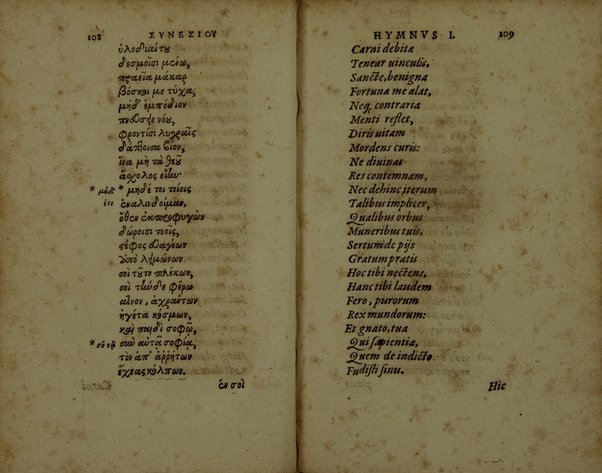 108 ΣΥΝΕΣΙΟΥ
ὑλοδιαίτου
δεσμοῖσι μένω,
πραεῖα μάκαρ
βόσκοι με τύχα,
μηδ' ἐμπόδιον
πνεύσειε νόου,
φροντίσι λυγραῖς
δάπτοισα βίον,
ἵνα μὴ τὰ θεοῦ
ἄσχολος εἴην·
* μηδέ τοι τοίοις
ἐναλινδοίμαν,
ὅθεν ἐκπροφυγὼν
δώροισι τεοῖς,
στέφος εὐαγέων
ἀπὸ λειμώνων
σοὶ τοῦτο πλέκων,
σοὶ τάνδε φέρω
αἶνον, ἀχράντων
ἡγέτα κόσμων,
καὶ παιδὶ σοφῷ,
σὺν αὐτᾷ σοφίᾳ,
τὸν ἀπ' ἀῤῥήτων
ἔχεας κόλπων.
ἐν σοὶ
HYMNVS I. 109
Carni debitæ
Tenear uinculis,
Sancte, benigna
Fortuna me alat,
Neq; contraria
Menti reflet,
Diris uitam
Mordens curis:
Ne diuina
Res contemnam,
Nec dehinc iterum
Talibus implicer,
Qualibus orbus
Muneribus tuis,
Sertum de pijs
Gratum pratis
Hoc tibi nectens,
Hanc tibi laudem
Fero, purorum
Rex mundorum:
Et gnato, tua
Qui sapientia,
Quem de indicto
Fudisti sinu.
Hic